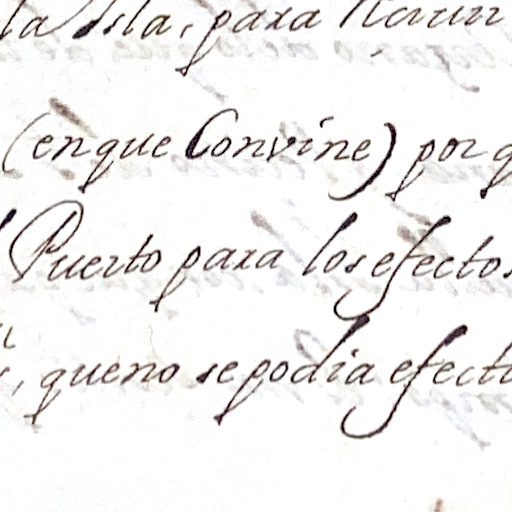 la Isla, para
(en que Convine) por q
Puerto para los efectos
, que no se podia efectu